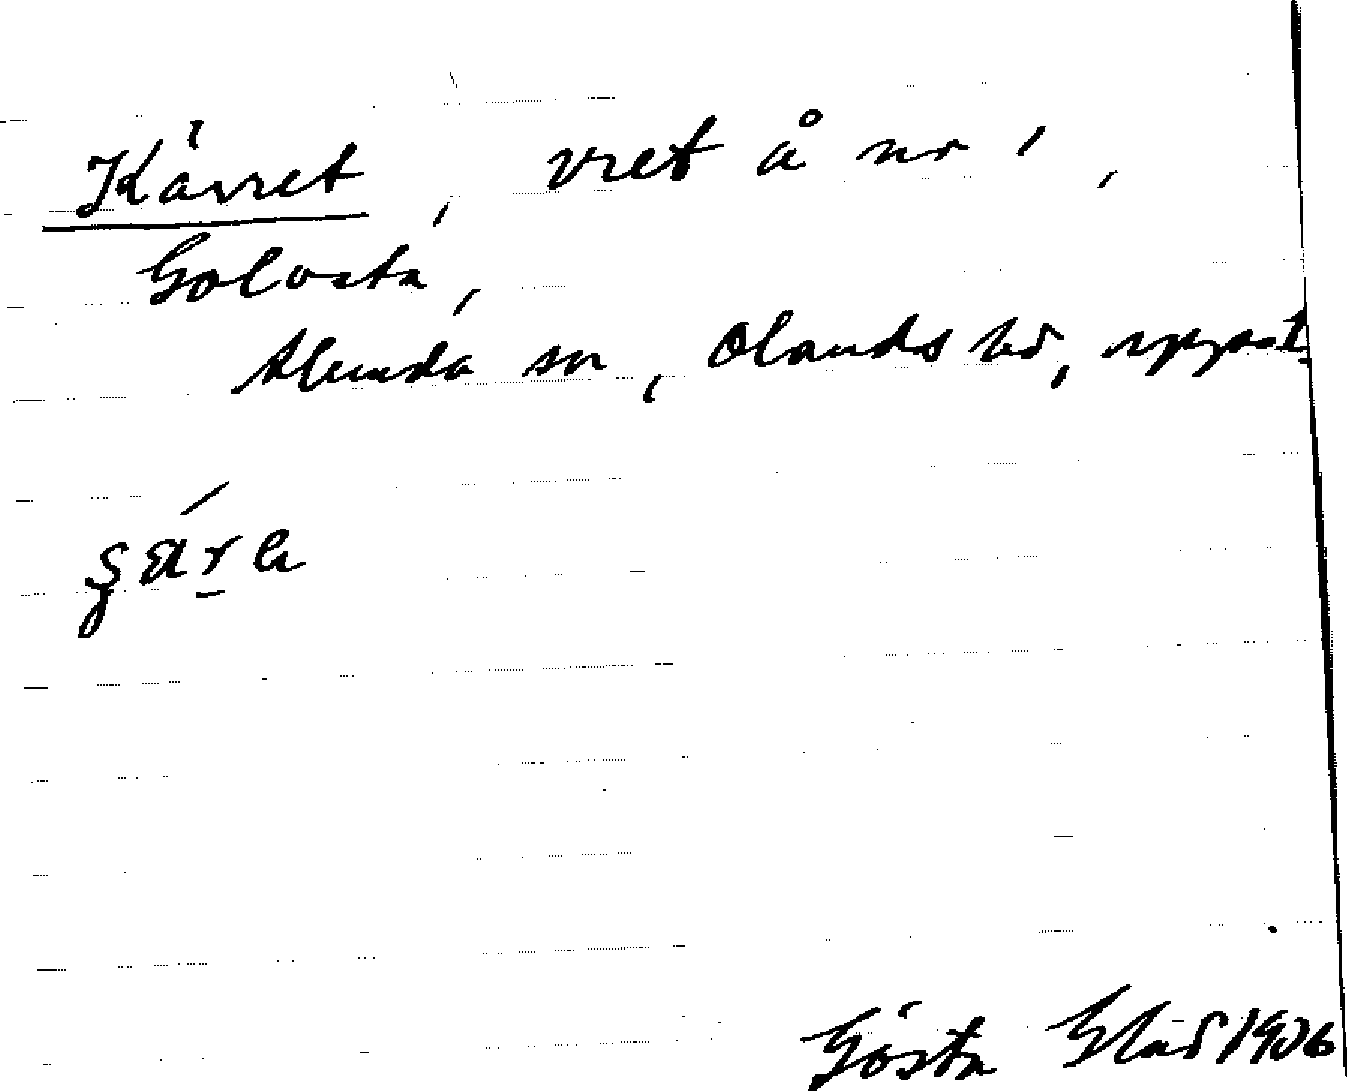 Kärret, vret å nr 1,
Golvsta,
Alunda sn, Olands hd, Uppst.
Gösta Glad 1936